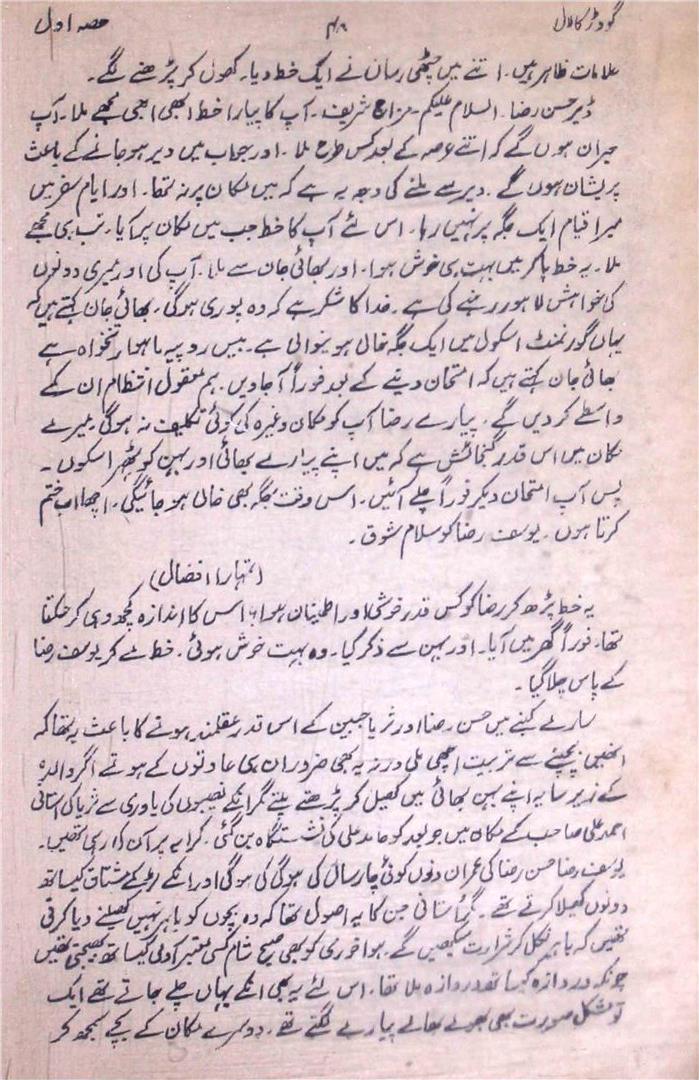 گودڑ کا لال ۴۸ حصہ اول
علامات ظاہر ہیں۔ اتنے میں چٹھی رسان نے ایک خط دیا۔ کھول کر پڑھنے لگے۔
ڈیر حسن رضا۔ السلام علیکم۔ مزاج شریف۔ آپ کا پیارا خط ابھی ابھی مجھے ملا۔ آپ
حیران ہوں گے کہ اتنے عرصہ کے بعد کس طرح ملا۔ اور جواب میں دیر ہو جانے کے باعث
پریشان ہوں گے۔ دیر سے ملنے کی وجہ یہ ہے کہ میں مکان پر نہ تھا۔ اور ایام سفر میں
میرا قیام ایک جگہ پر نہیں رہا۔ اس لئے آپ کا خط جب میں مکان پر آیا۔ تب ہی مجھے
ملا۔ یہ خط پا کر میں بہت ہی خوش ہوا۔ اور بھائی جان سے ملا۔ آپ کی اور میری دونوں
کی خواہش لاہور رہنے کی ہے۔ خدا کا شکر ہے کہ وہ پوری ہوگی۔ بھائی جان کہتے ہیں کہ
یہاں گورنمنٹ اسکول میں ایک جگہ خالی ہونیوالی ہے۔ بیس روپیہ ماہوار تنخواہ ہے
بھائی جان کہتے ہیں کہ امتحان دینے کے بعد فوراً آجاویں۔ ہم معقول انتظام ان کے
واسطے کر دیں گے۔ پیارے رضا آپ کو مکان وغیرہ کی کوئی تکلیف نہ ہوگی میرے
مکان میں اس قدر گنجائش ہے کہ میں اپنے پیارے بھائی اور بہن کو ٹھہرا سکوں۔
پس آپ امتحان دیکر فوراً چلے آئیں۔ اس وقت جگہ بھی خالی ہو جائیگی۔ اچھا اب ختم
کرتا ہوں۔ یوسف رضا کو سلام شوق۔
(تمہارا افضال)
یہ خط پڑھ کر رضا کو کس قدر خوشی اور اطمینان ہوا، اس کا اندازہ کچھ وہی کر سکتا
تھا۔ فوراً گھر میں آیا۔ اور بہن سے ذکر کیا۔ وہ بہت خوش ہوئی۔ خط لے کر یوسف رضا
کے پاس چلا گیا۔
سارے کنبے میں حسن رضا اور ثریا جبین کے اس قدر عقلمند ہونے کا باعث یہ تھا کہ
انھیں بچپنے سے تربیت اچھی ملی ورنہ یہ بھی ضرور ان ہی عادتوں کے ہوتے اگر والدہ
کے زیر سایہ اپنے بہن بھائی میں کھیل کر پڑھتے پلتے مگر انکے نصیبوں کی یاوری سے ثریا کی استانی
احمد علی صاحب کے مکان میں جو بعد کو حامد علی کی نشستگاہ بن گئی۔ کرایہ پر آن کر رہی تھیں۔
یوسف رضا حسن رضا کی عمر ان دنوں کوئی چار سال کی ہوگی کی ہوگی اور انکے لڑکے مشتاق کیساتھ
دونوں کھیلا کرتے تھے۔ استانی جن کا یہ اصول تھا کہ وہ بچوں کو باہر نہیں کھیلنے دیا کرتی
تھیں کہ باہر نکل کر شرارت سیکھیں گے۔ ہوا خوری کو بھی صبح شام کسی معتبر آدمی کیساتھ بھیجتی تھیں
چونکہ دروازہ کیساتھ دروازہ ملا تھا۔ اس لئے یہ بھی انکے یہاں چلے جاتے تھے ایک
تو شکل صورت بھی بھولے بھالے پیارے لگتے تھے۔ دوسرے مکان کے بچے سمجھ کر